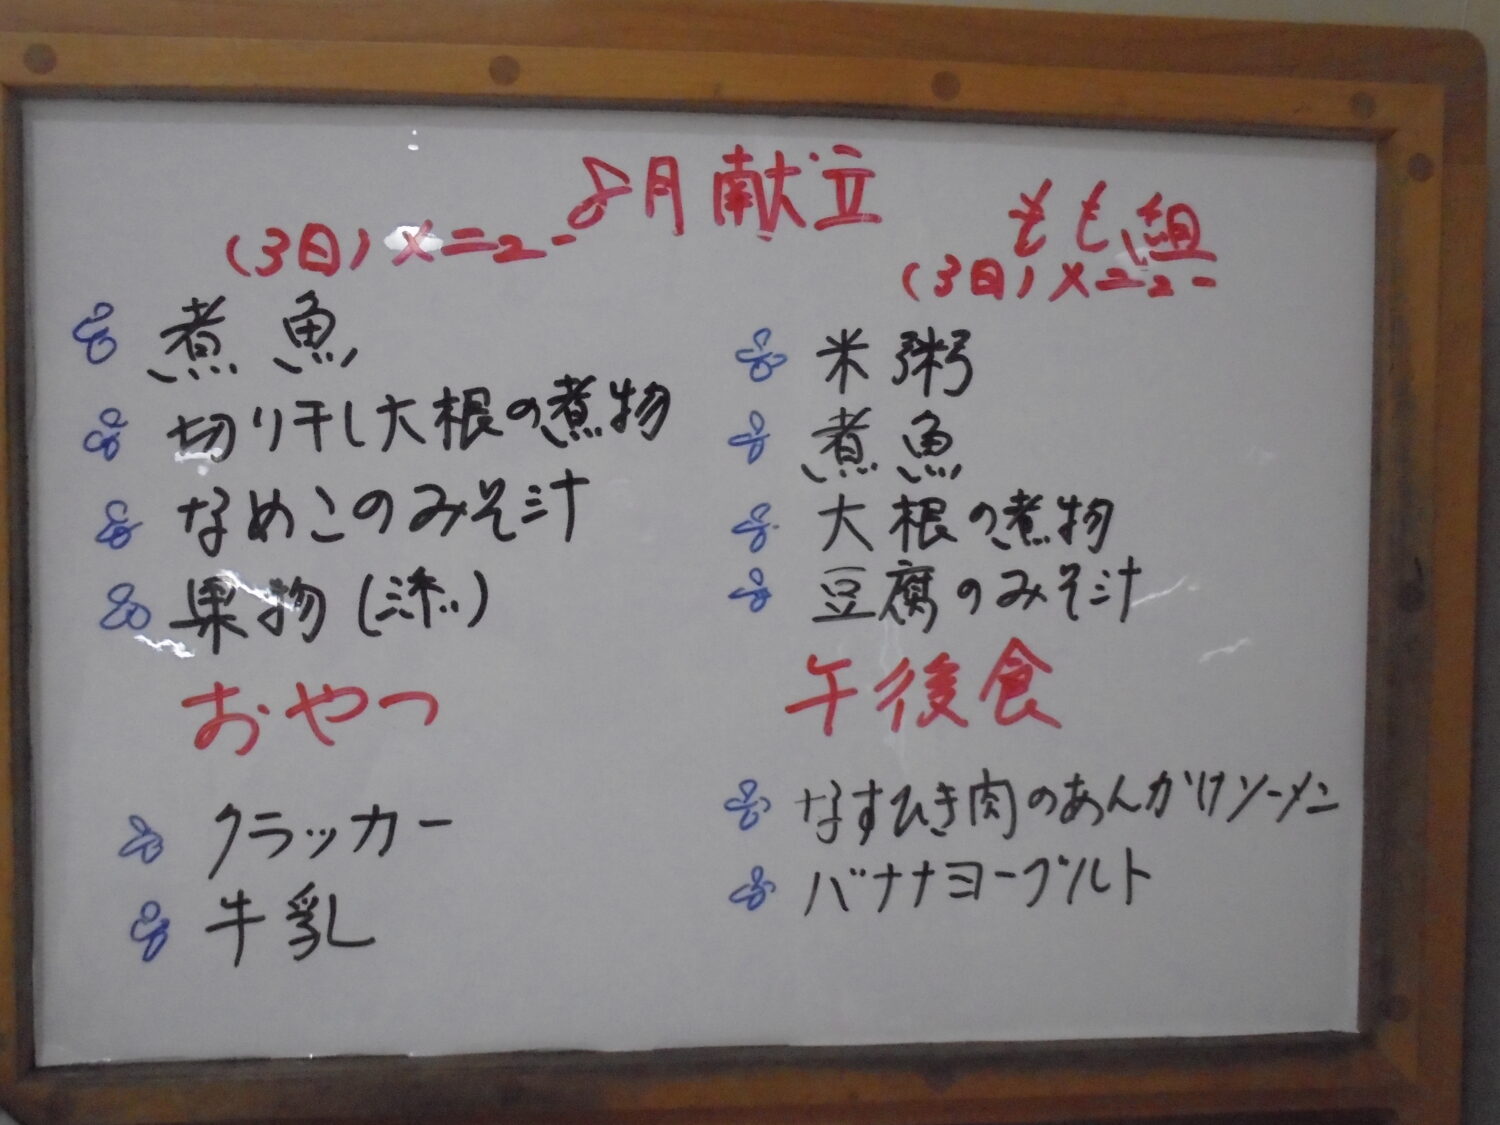 8月献立
(3日)メニュー
煮魚
切り干し大根の煮物
なめこのみそ汁
果物(添)
おやつ
クラッカー
牛乳
もも組
(3日)メニュー
米粥
煮魚
大根の煮物
豆腐のみそ汁
午後食
なすひき肉のあんかけソーメン
バナナヨーグルト